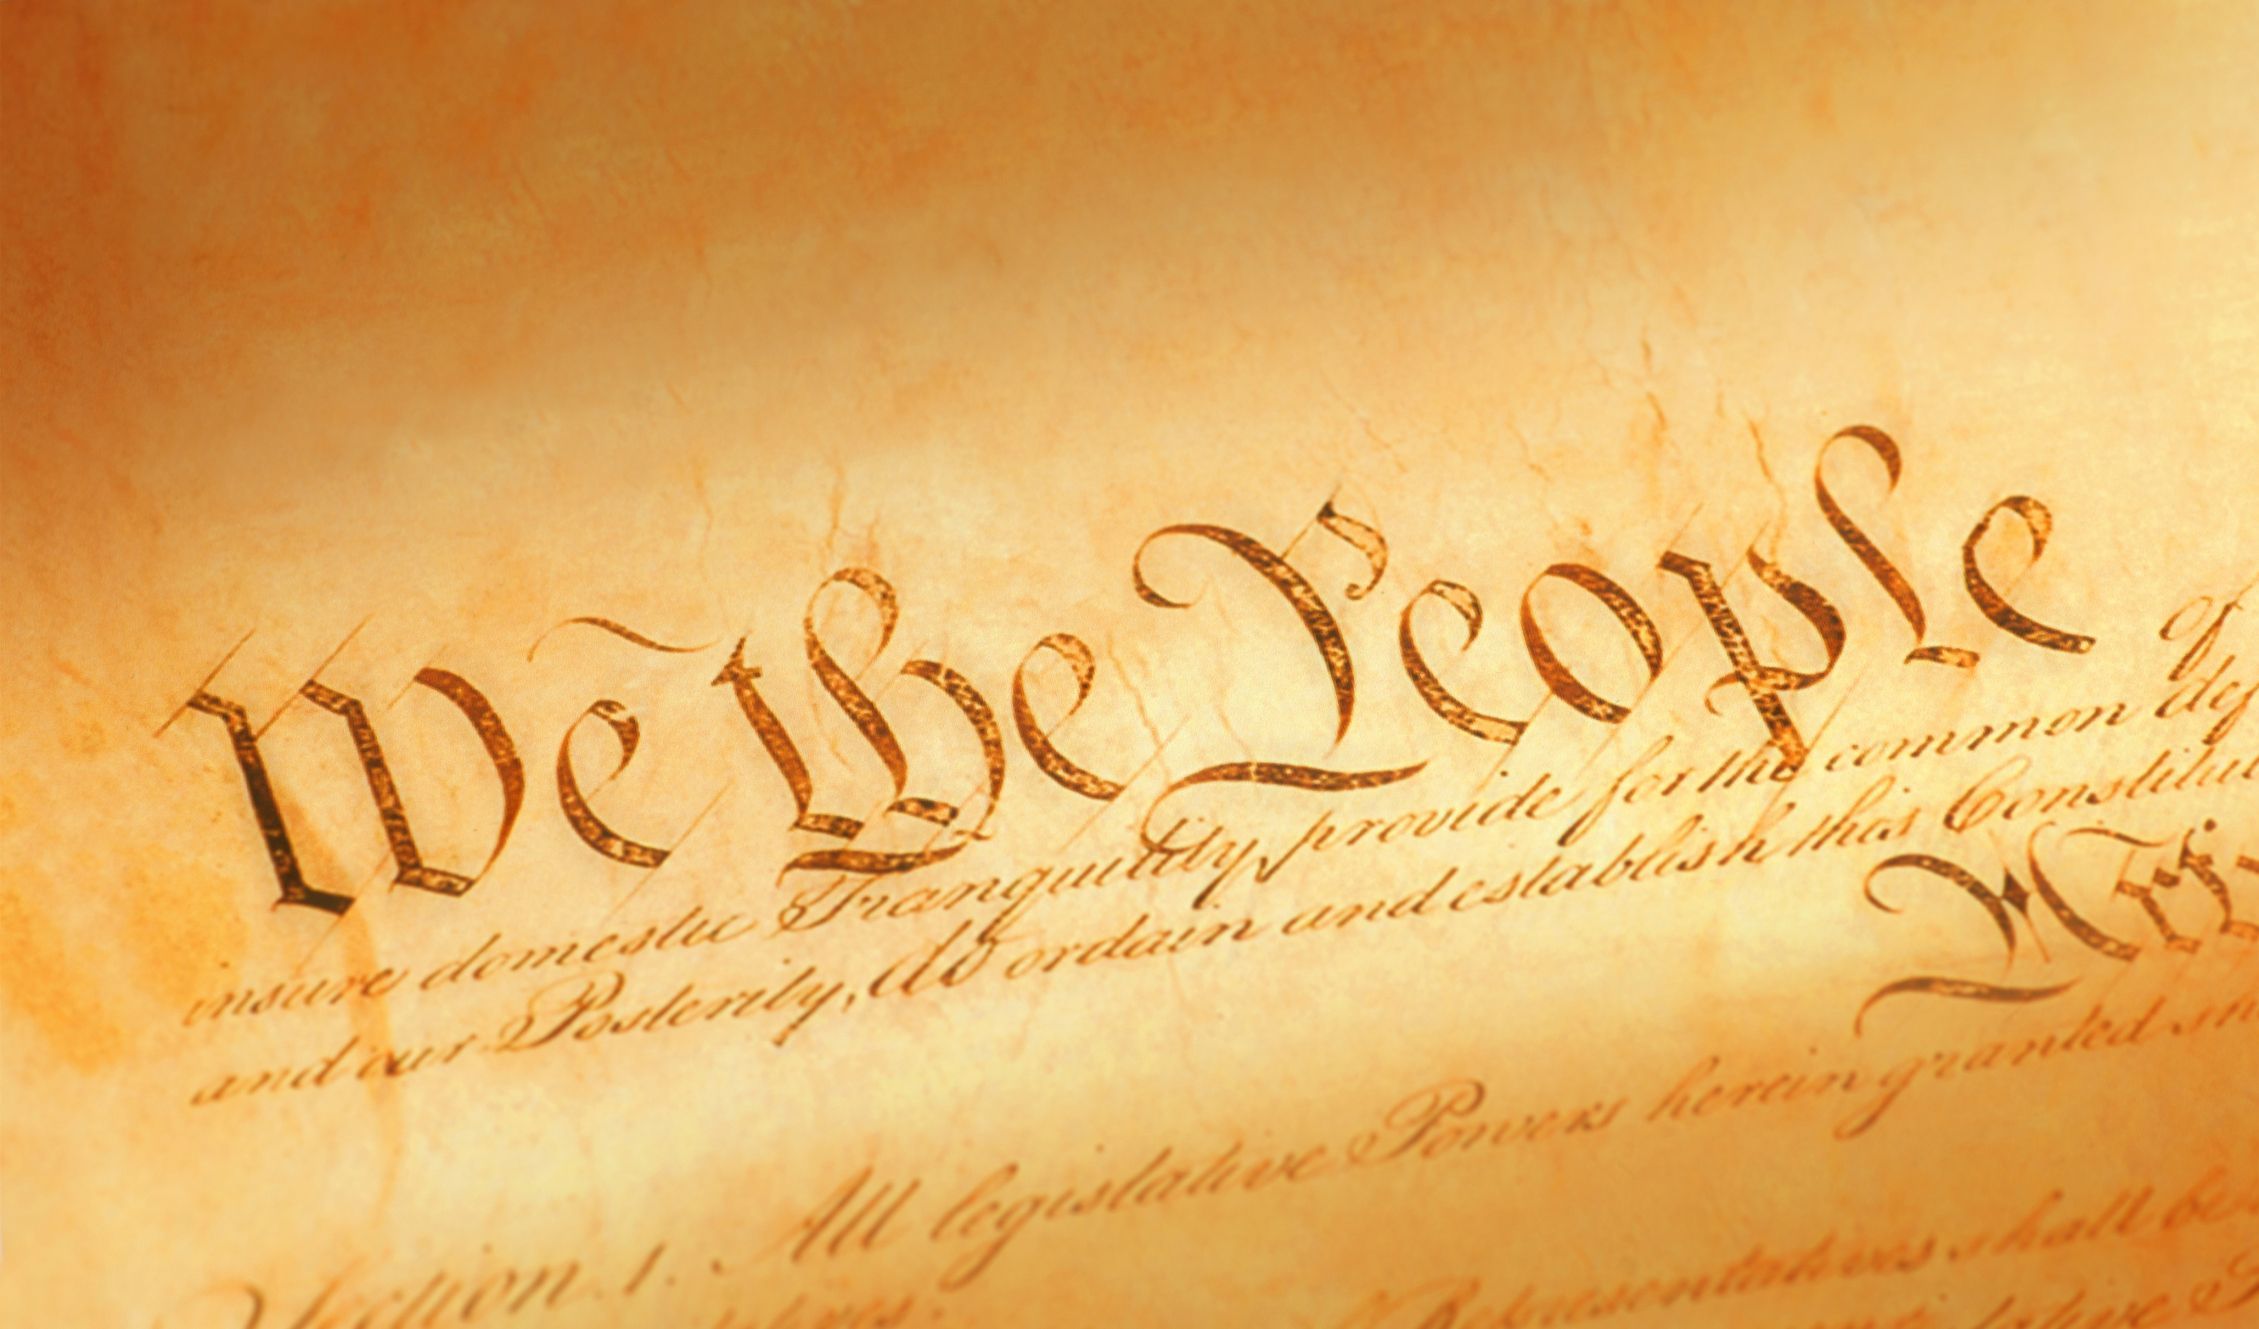 We the People of
insure domestic Tranquility, provide for the common def
and our Posterity, do ordain and establish this Constitu
Section. 1. All legislative Powers herein granted
Representatives shall be